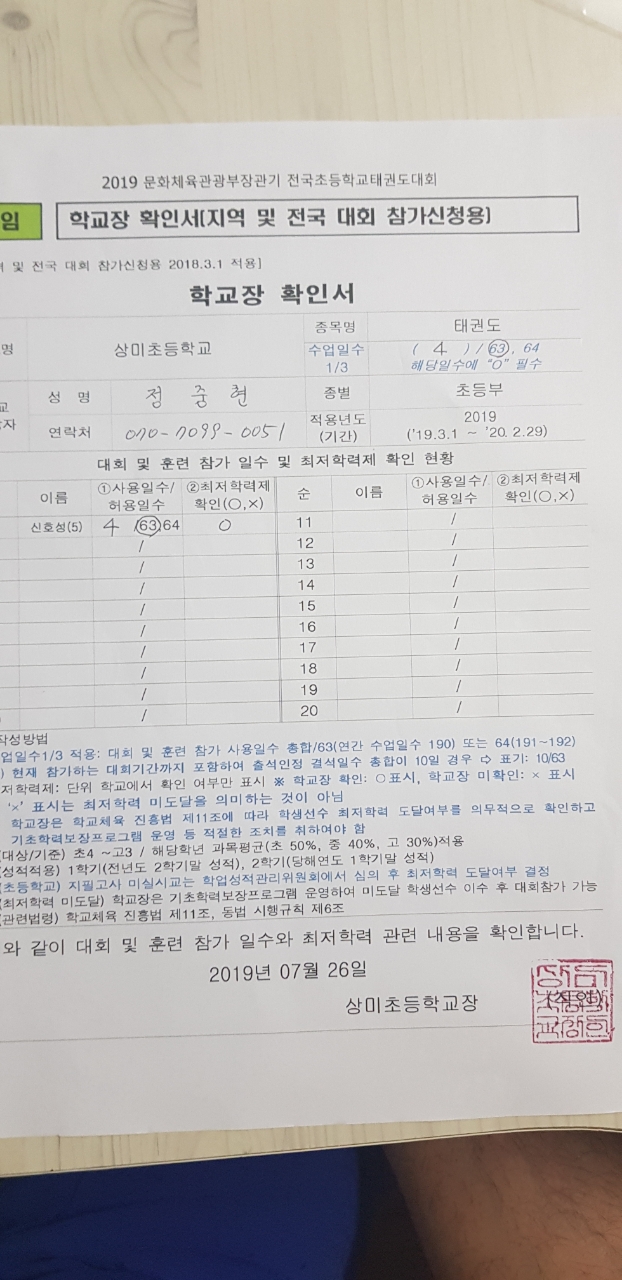 2019 문화체육관광부장관기 전국초등학교태권도대회
임 학교장 확인서[지역 및 전국 대회 참가신청용]
및 전국 대회 참가신청용 2018.3.1 적용]
학교장 확인서
명 상미초등학교 종목명 태권도
수업일수 1/3 ( 4 ) / 63, 64
해당일수에 "O" 필수
성 명 정중현 종별 초등부
연락처 070-7099-0051 적용년도 (기간) 2019
('19.3.1 ~ '20.2.29)
대회 및 훈련 참가 일수 및 최저학력제 확인 현황
이름 ①사용일수/허용일수 ②최저학력제 확인(○,×) 순 이름 ①사용일수/허용일수 ②최저학력제 확인(○,×)
신호성(5) 4 /63,64 ○ 11 /
/ 12 /
/ 13 /
/ 14 /
/ 15 /
/ 16 /
/ 17 /
/ 18 /
/ 19 /
/ 20 /
작성방법
업일수1/3 적용: 대회 및 훈련 참가 사용일수 총합/63(연간 수업일수 190) 또는 64(191~192)
) 현재 참가하는 대회기간까지 포함하여 출석인정 결석일수 총합이 10일 경우 ⇨ 표기: 10/63
저학력제: 단위 학교에서 확인 여부만 표시 ※ 학교장 확인: ○표시, 학교장 미확인: × 표시
'×' 표시는 최저학력 미도달을 의미하는 것이 아님
학교장은 학교체육 진흥법 제11조에 따라 학생선수 최저학력 도달여부를 의무적으로 확인하고
기초학력보장프로그램 운영 등 적절한 조치를 취하여야 함
(대상/기준) 초4 ~고3 / 해당학년 과목평균(초 50%, 중 40%, 고 30%)적용
(성적적용) 1학기(전년도 2학기말 성적), 2학기(당해연도 1학기말 성적)
(초등학교) 지필고사 미실시교는 학업성적관리위원회에서 심의 후 최저학력 도달여부 결정
(최저학력 미도달) 학교장은 기초학력보장프로그램 운영하여 미도달 학생선수 이수 후 대회참가 가능
(관련법령) 학교체육 진흥법 제11조, 동법 시행규칙 제6조
와 같이 대회 및 훈련 참가 일수와 최저학력 관련 내용을 확인합니다.
2019년 07월 26일
상미초등학교장 (직인)